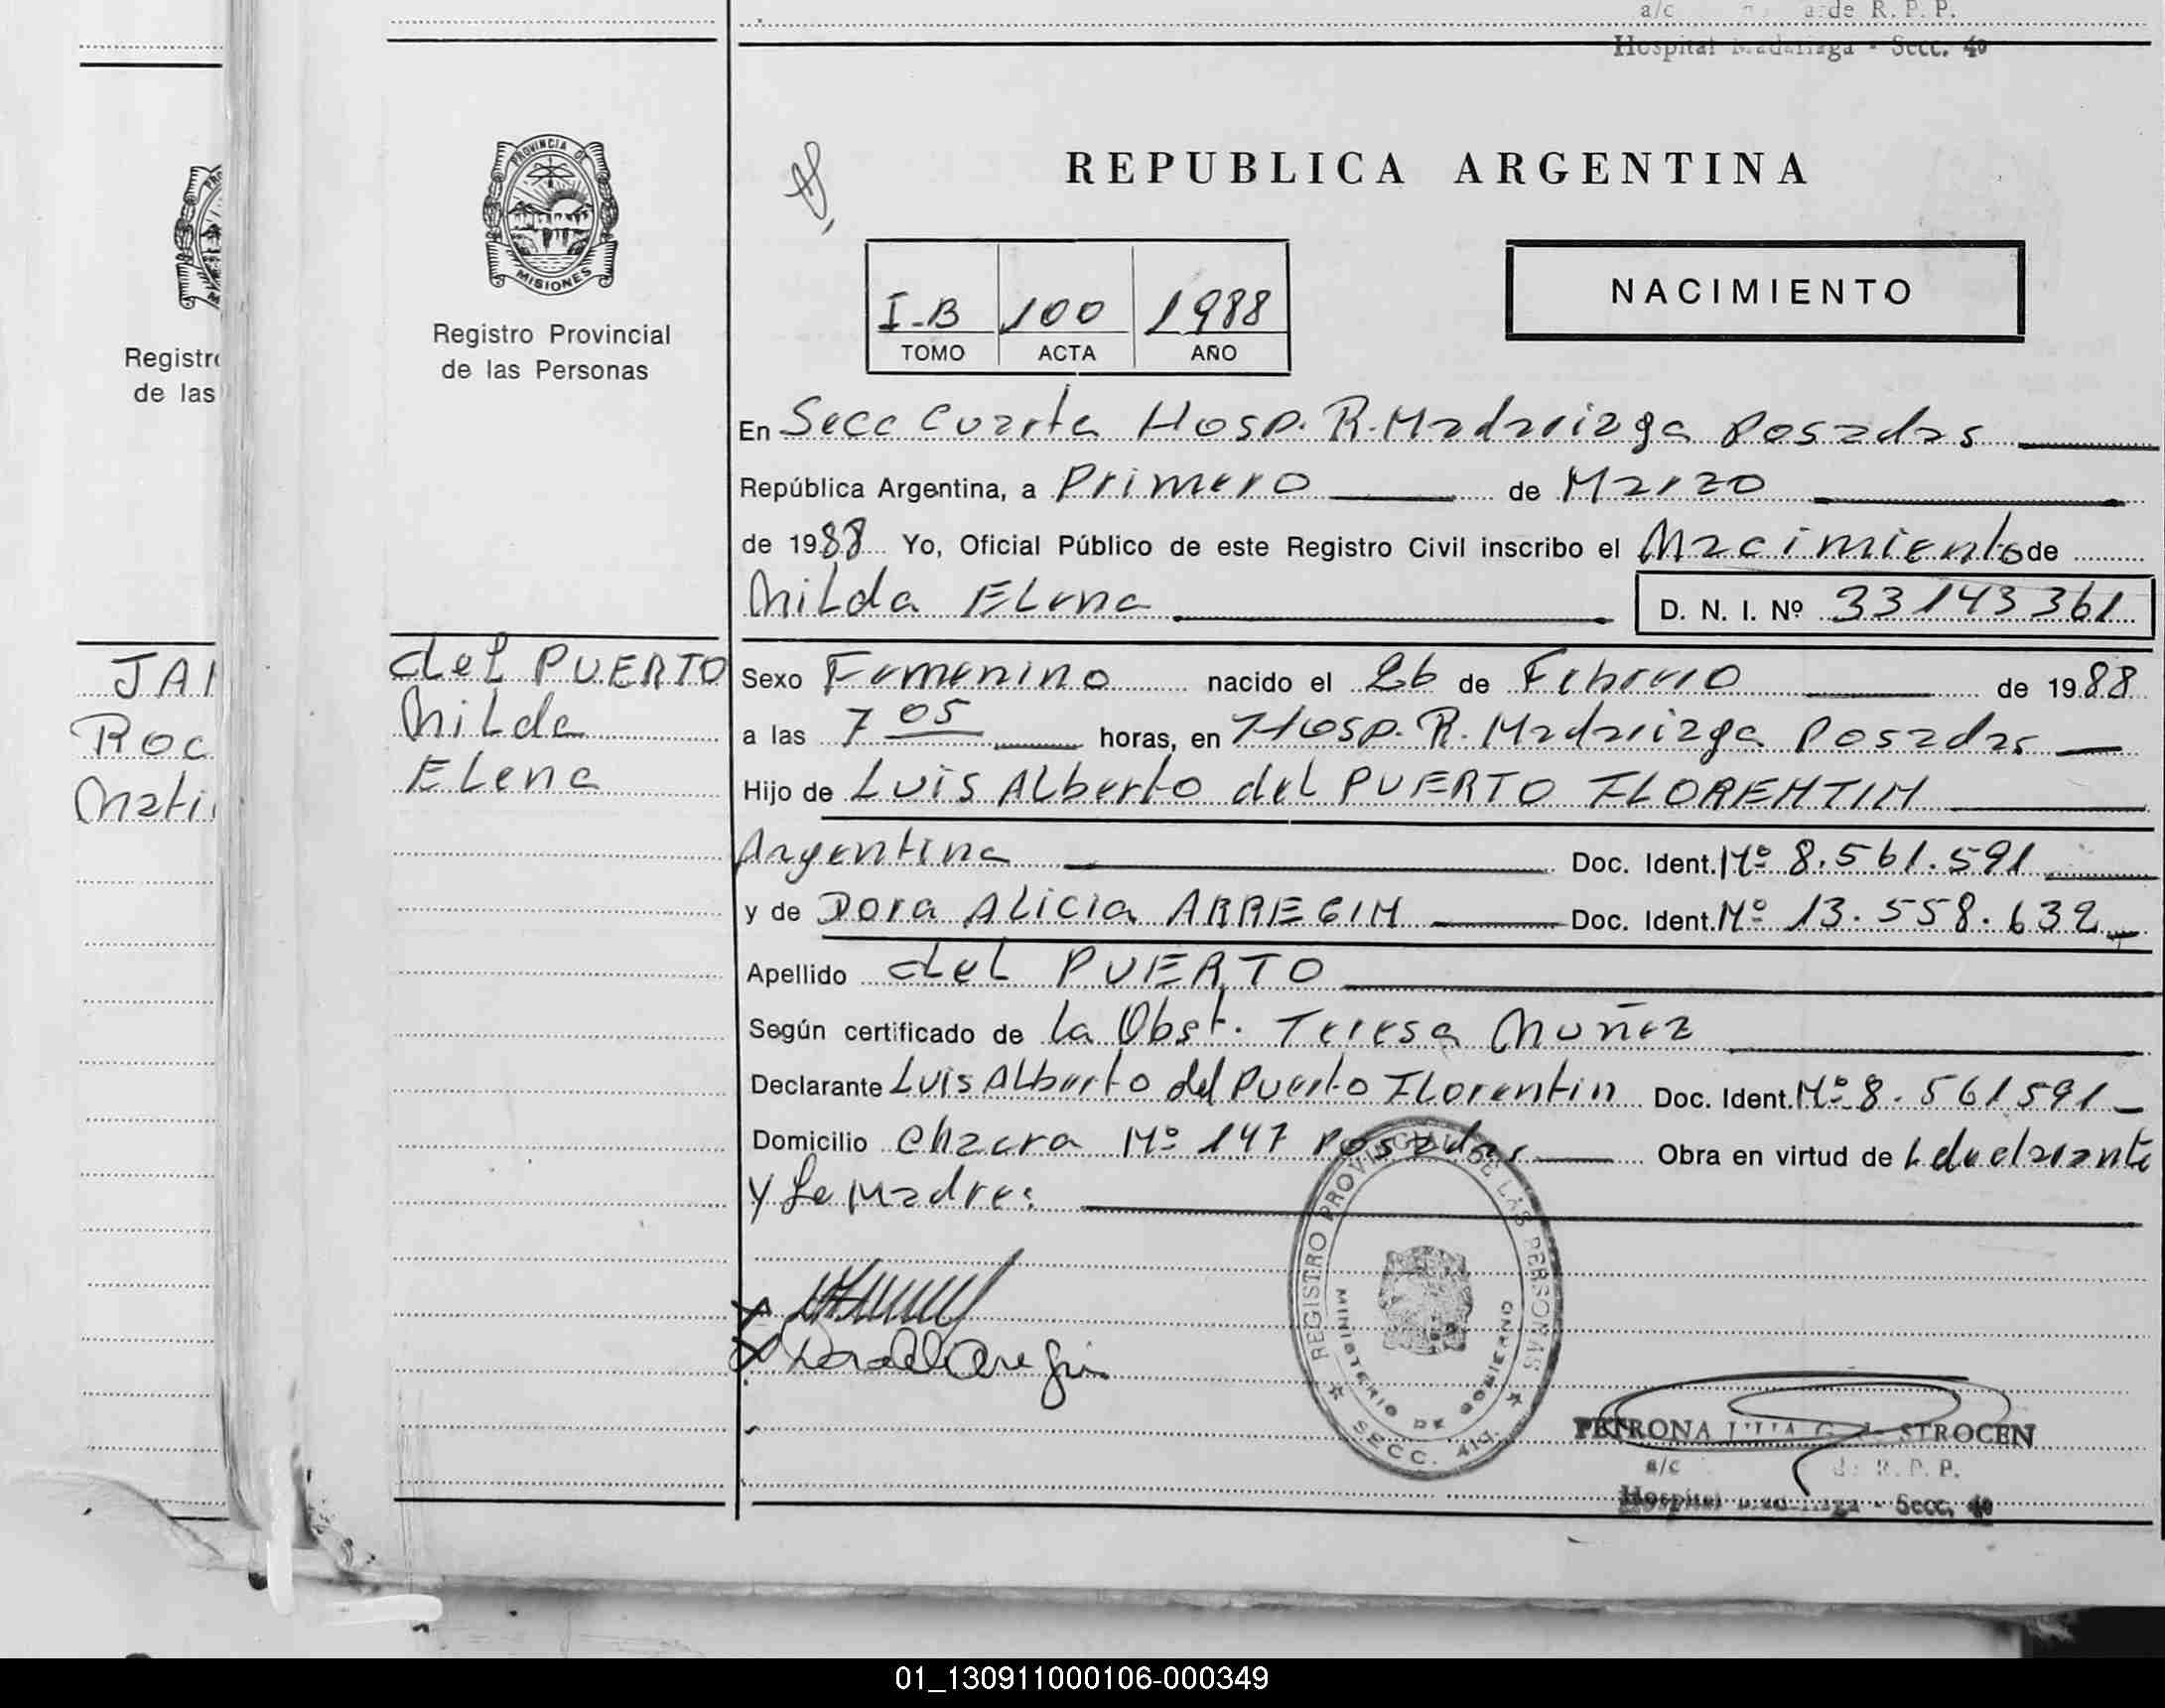 a/c de R. P. P.
Hospital Madariaga - Secc. 4ª
PROVINCIA DE
MISIONES
Registro Provincial
de las Personas
REPUBLICA ARGENTINA
I-B 100 1988
TOMO ACTA AÑO
NACIMIENTO
En Secc Cuarta Hosp. R. Madariaga Posadas
República Argentina, a Primero de Marzo
de 1988 Yo, Oficial Público de este Registro Civil inscribo el Nacimiento de
Nilda Elena
D. N. I. Nº 33143361
del PUERTO
Nilda
Elena
Sexo Femenino nacido el 26 de Febrero de 1988
a las 7 05 horas, en Hosp. R. Madariaga Posadas
Hijo de Luis Alberto del PUERTO FLORENTIN
Argentina Doc. Ident. Nº 8.561.591
y de Dora Alicia ARREGIN Doc. Ident. Nº 13.558.632
Apellido del PUERTO
Según certificado de la Obst. Teresa Nuñez
Declarante Luis Alberto del Puerto Florentin Doc. Ident. Nº 8.561591
Domicilio Chacra Nº 147 Posadas Obra en virtud de L declarante
y La Madre:
REGISTRO PROVINCIAL DE LAS PERSONAS
MINISTERIO DE GOBIERNO
SECC. 4ta.
PETRONA STROCEN
a/c de R. P. P.
Hospital Madariaga - Secc. 4ª
Registro
de las
JAN
ROC
Mati
01_130911000106-000349